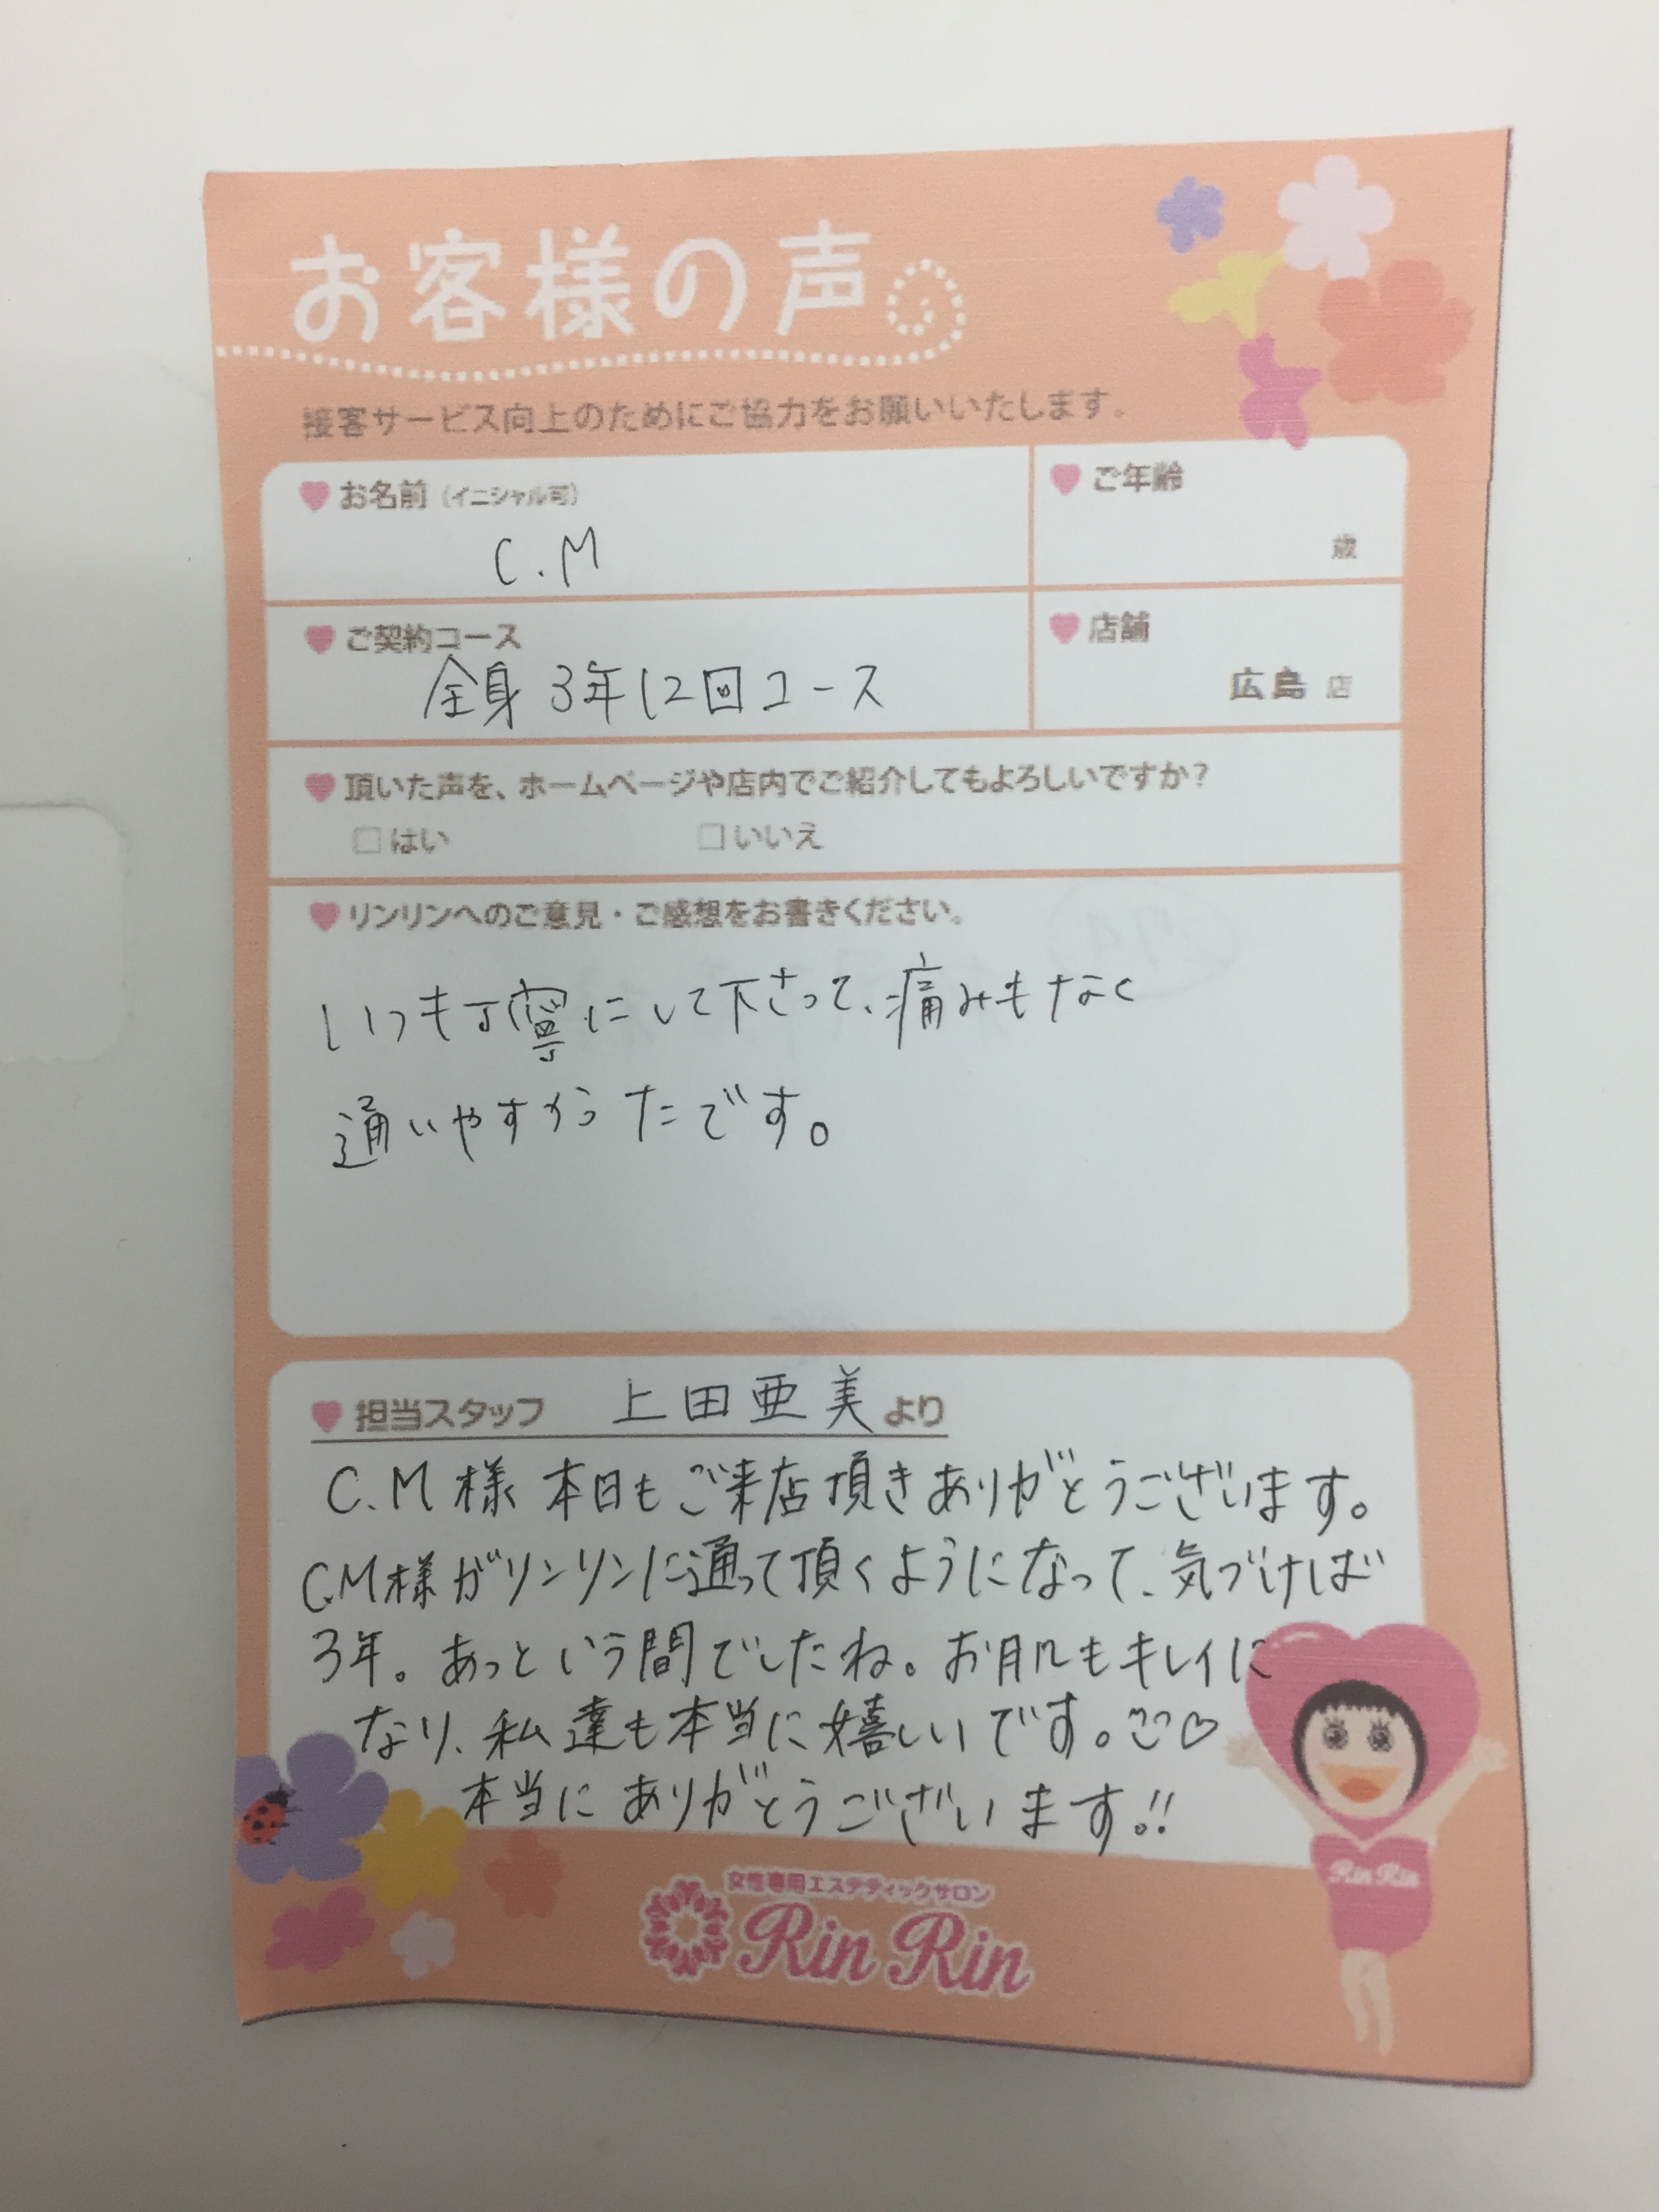 お客様の声
接客サービス向上のためにご協力をお願いいたします。
お名前（イニシャル可）
C.M
ご年齢
歳
ご契約コース
全身 3年12回コース
店舗
広島 店
頂いた声を、ホームページや店内でご紹介してもよろしいですか？
□はい □いいえ
リンリンへのご意見・ご感想をお書きください。
いつも丁寧にして下さって、痛みもなく
通いやすかったです。
担当スタッフ 上田亜美より
C.M様 本日もご来店頂きありがとうございます。
C.M様がリンリンに通って頂くようになって、気づけば
3年。あっという間でしたね。お肌もキレイに
なり、私達も本当に嬉しいです。♡
本当にありがとうございます!!
Rin Rin
女性専用エステティックサロン
Rin Rin